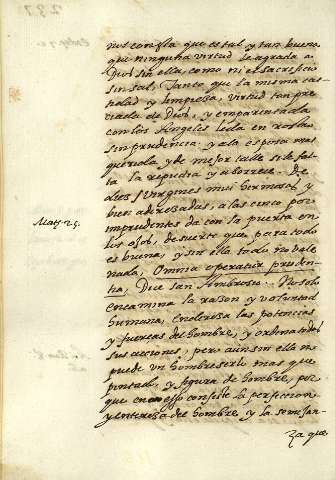 nos consta que es tal y tan buena
que ninguna virtud le agrada a
Dios sin ella, como ni el sacrificio
sin sal. Tanto que la misma cas-
tidad y limpiesa, virtud tan pre-
ciada de Dios, y emparentada
con los Angeles le da en rostro
sin prudencia, y a la esposa mas
querida y de mejor talle si le fal-
ta la repudia y aborrece. De
dies Virgines mui hermosas y
bien aderesadas, a las cinco por
imprudentes da con la puerta en
los ojos, de suerte que para todo
es buena, y sin ella todo no vale
nada, Omnia operatur pruden-
tia, Dice san Ambrosio. No solo
encamina la rason y voluntad
humana, enderesa las potencias
y fuersas del hombre, y ordena todas
sus acciones, pero aun sin ella no
puede un hombre serlo mas que
pintado, y figura de hombre, por
que en esso consiste la perfeccion
y enteresa del hombre y la semejan-
za que
Mat. 25.